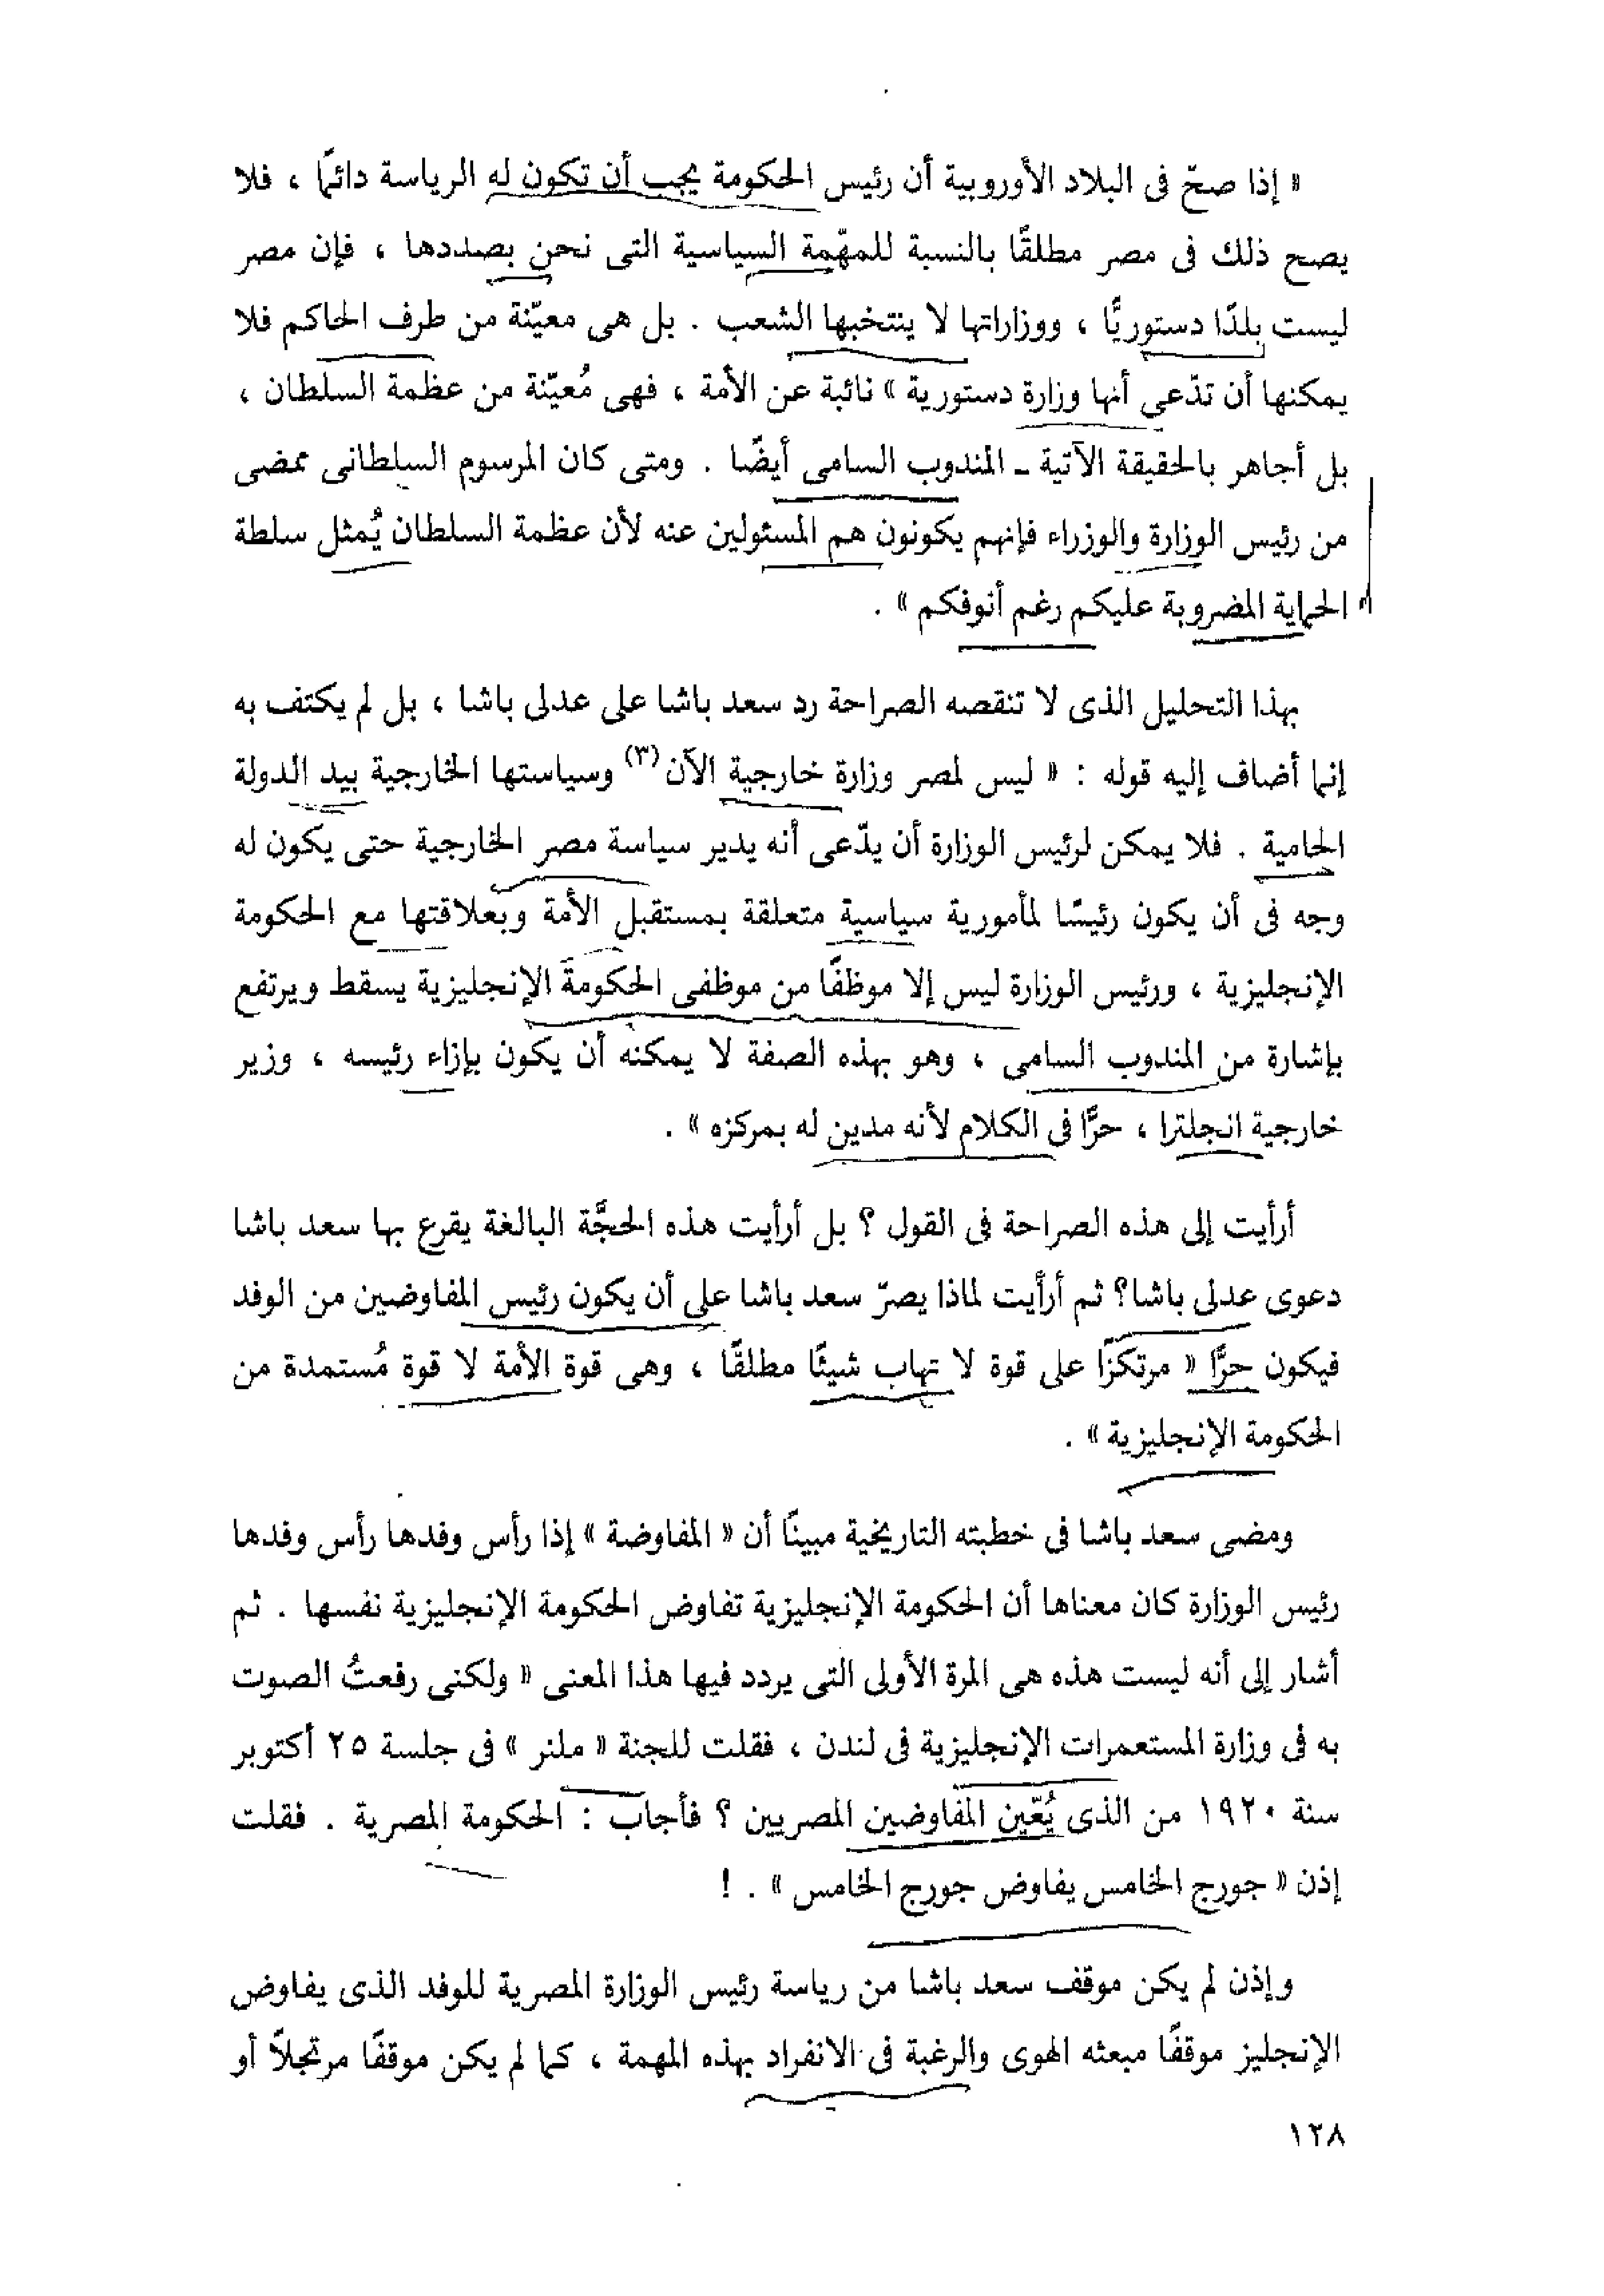 « إذا صحّ فى البلاد الأوروبية أن رئيس الحكومة يجب أن تكون له الرياسة دائمًا ، فلا
يصح ذلك فى مصر مطلقًا بالنسبة للمهّمة السياسية التى نحن بصددها ، فإن مصر
ليست بلدًا دستوريًّا ، ووزاراتها لا ينتخبها الشعب . بل هى معيّنة من طرف الحاكم فلا
يمكنها أن تدّعى أنها وزارة دستورية » نائبة عن الأمة ، فهى مُعيّنة من عظمة السلطان ،
بل أجاهر بالحقيقة الآتية ـ المندوب السامى أيضًا . ومتى كان المرسوم السلطانى ممضى
من رئيس الوزارة والوزراء فإنهم يكونون هم المسئولين عنه لأن عظمة السلطان يُمثل سلطة
الحماية المضروبة عليكم رغم أنوفكم » .
بهذا التحليل الذى لا تنقصه الصراحة رد سعد باشا على عدلى باشا ، بل لم يكتف به
إنما أضاف إليه قوله : « ليس لمصر وزارة خارجية الآن (٣) وسياستها الخارجية بيد الدولة
الحامية . فلا يمكن لرئيس الوزارة أن يدّعى أنه يدير سياسة مصر الخارجية حتى يكون له
وجه فى أن يكون رئيسًا لمأمورية سياسية متعلقة بمستقبل الأمة وبعلاقتها مع الحكومة
الإنجليزية ، ورئيس الوزارة ليس إلا موظفًا من موظفى الحكومة الإنجليزية يسقط ويرتفع
بإشارة من المندوب السامى ، وهو بهذه الصفة لا يمكنه أن يكون بإزاء رئيسه ، وزير
خارجية انجلترا ، حرًّا فى الكلام لأنه مدين له بمركزه » .
أرأيت إلى هذه الصراحة فى القول ؟ بل أرأيت هذه الحجَّة البالغة يقرع بها سعد باشا
دعوى عدلى باشا؟ ثم أرأيت لماذا يصرّ سعد باشا على أن يكون رئيس المفاوضين من الوفد
فيكون حرًّا « مرتكزًا على قوة لا تهاب شيئًا مطلقًا ، وهى قوة الأمة لا قوة مُستمدة من
الحكومة الإنجليزية » .
ومضى سعد باشا فى خطبته التاريخية مبينًا أن « المفاوضة » إذا رأس وفدها رأس وفدها
رئيس الوزارة كان معناها أن الحكومة الإنجليزية تفاوض الحكومة الإنجليزية نفسها . ثم
أشار إلى أنه ليست هذه هى المرة الأولى التى يردد فيها هذا المعنى « ولكنى رفعتُ الصوت
به فى وزارة المستعمرات الإنجليزية فى لندن ، فقلت للجنة « ملنر » فى جلسة ٢٥ أكتوبر
سنة ١٩٢٠ من الذى يُعّين المفاوضين المصريين ؟ فأجاب : الحكومة المصرية . فقلت
إذن « جورج الخامس يفاوض جورج الخامس » . !
وإذن لم يكن موقف سعد باشا من رياسة رئيس الوزارة المصرية للوفد الذى يفاوض
الإنجليز موقفًا مبعثه الهوى والرغبة فى الانفراد بهذه المهمة ، كما لم يكن موقفًا مرتجلاً أو
١٢٨